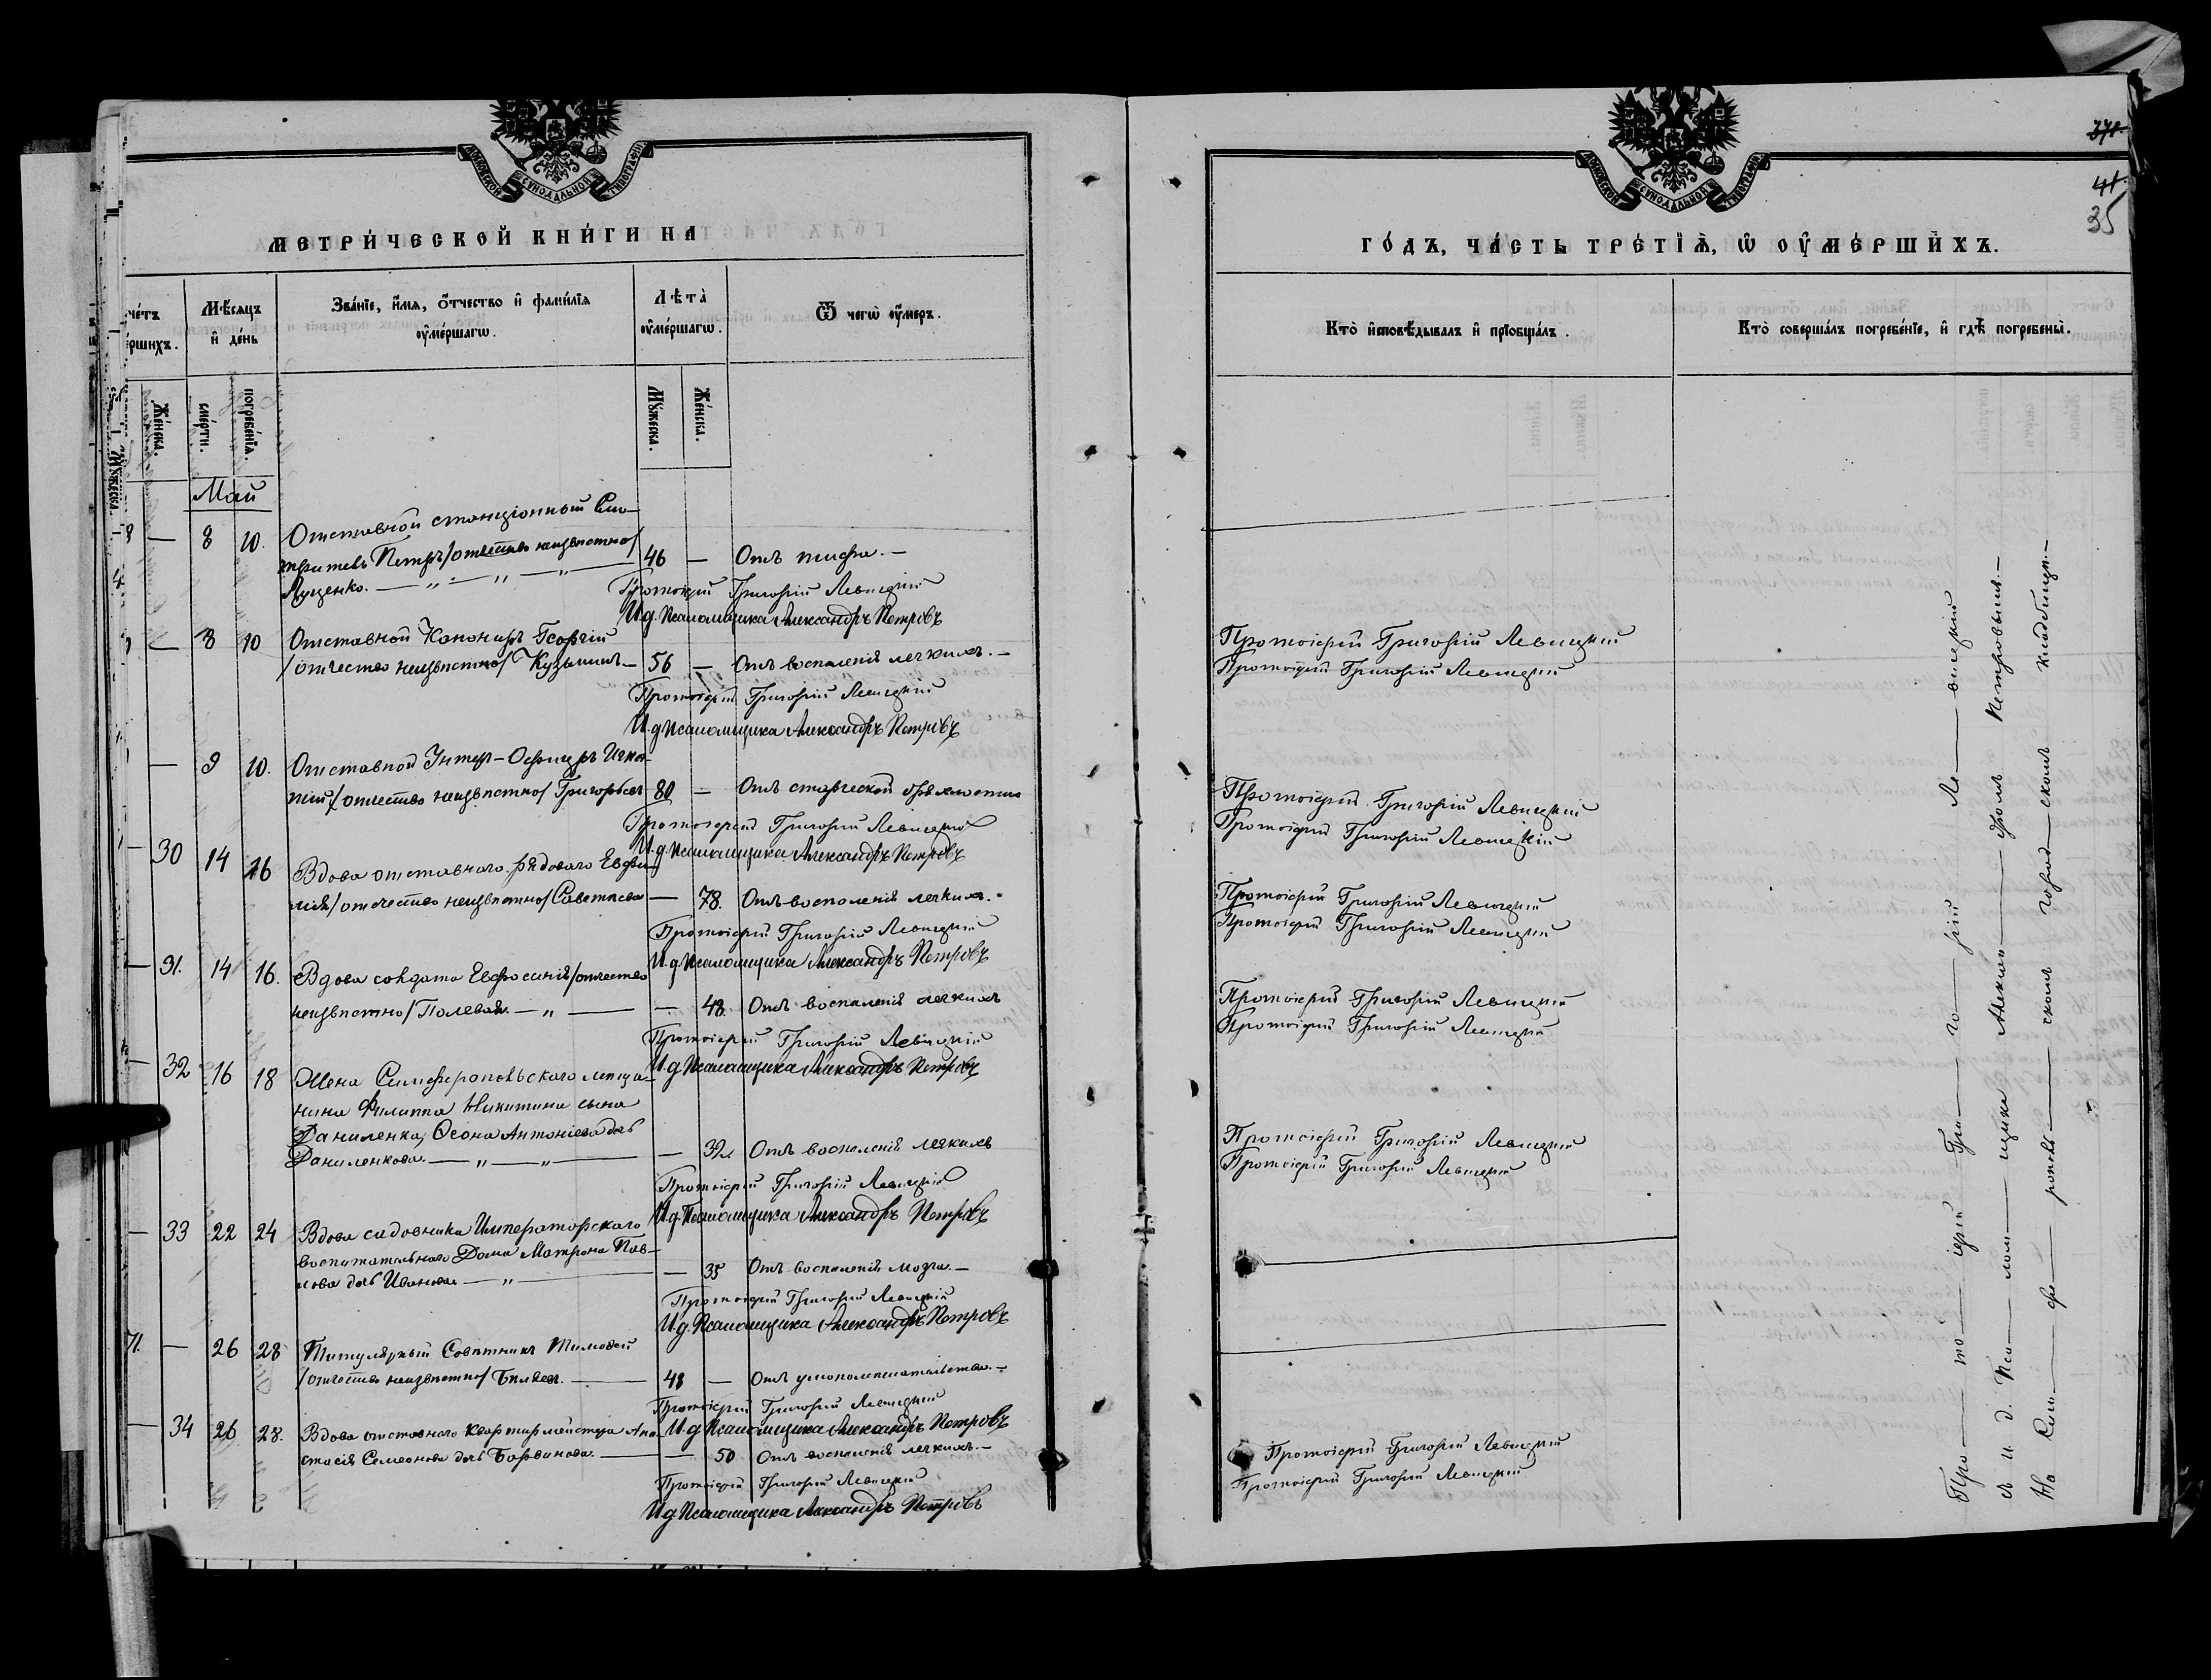 МОСКОВСКОЙ СУНОДАЛЬНОЙ ТИПОГРАФІИ
МЕТРИ́ЧЕСКОЙ КНИ́ГИ НА
че́тъ
е́ршихъ.
Мѣ́сяцъ
и҆ де́нь
Зва́нїе, и҆́мя, ѻ҆́тчество и҆ фами́лїя
оу҆ме́ршагѡ.
Лѣ́та̀
оу҆ме́ршагѡ.
Ѿ чегѡ̀ оу҆́меръ.
Же́нска.
сме́рти.
погребе́нїя.
Мꙋ́жеска.
Же́нска.
Май
8 — 8 10. Отставной станціонный Смо-
тритель Петръ /отчество неизвѣстно/ 46 — Отъ тифа. —
Луценко. — „ — „ — „ —
Протоіерей Григорій Левицкій
И.д. Псаломщика Александръ Петровъ
— 8 10 Отставной Канониръ Георгій
/отчество неизвѣстно/ Кузьминъ — 56 — Отъ воспаленія легкихъ. —
Протоіерей Григорій Левицкій
И.д. Псаломщика Александръ Петровъ
— 9 10. Отставной Унтеръ-Офицеръ Игна-
тій /отчество неизвѣстно/ Григорьевъ 80 — Отъ старческой дряхлости
Протоіерей Григорій Левицкій
И.д. Псаломщика Александръ Петровъ
— 30 14 16 Вдова отставного рядового Евфи-
мія /отчество неизвѣстно/ — 78. Отъ воспаленія легкихъ. -
Протоіерей Григорій Левицкій
И.д. Псаломщика Александръ Петровъ
— 31. 14 16. Вдова солдата Евфросинія /отчество
неизвѣстно/ Полевая. — „ — — 48. Отъ воспаленія легкихъ
Протоіерей Григорій Левицкій
И.д. Псаломщика Александръ Петровъ
— 32 16 18 Жена Симферопольскаго мѣща-
нина Филиппа Никитина сына
Даниленка, Ѳеона Антоніева дочь
Даниленкова. — „ — „ — — 32 Отъ воспаленія легкихъ
Протоіерей Григорій Левицкій
И.д. Псаломщика Александръ Петровъ
— 33 22 24 Вдова садовника Императорскаго
воспитательнаго Дома Матрона Пав-
лова дочь Иванова — „ — — 35 Отъ воспаленія мозга. —
Протоіерей Григорій Левицкій
И.д. Псаломщика Александръ Петровъ
71. — 26 28 Титулярный Совѣтникъ Тимофей
/отчество неизвѣстно/ Бѣляев. — 48 — Отъ умопомѣшательства. —
Протоіерей Григорій Левицкій
И.д. Псаломщика Александръ Петровъ
— 34 26 28. Вдова отставного квартирмейстера Ана-
стасія Семеонова дочь Барвинова. — — 50 Отъ воспаленія легкихъ. —
Протоіерей Григорій Левицкій
И.д. Псаломщика Александръ Петровъ
41.
35
МОСКОВСКОЙ СУНОДАЛЬНОЙ ТИПОГРАФІИ
ГО́ДЪ, ЧА́СТЬ ТРЕ́ТЇѦ, Ѡ ОУ҆МЕ́РШИХЪ.
Кто̀ и҆сповѣ́дывалъ и҆ прїобща́лъ.
Кто̀ соверша́лъ погребе́нїе, и҆ гдѣ̀ погребены̀.
Протоіерей Григорій Левицкій
Протоіерей Григорій Левицкій
Протоіерей Григорій Левицкій
Протоіерей Григорій Левицкій
Протоіерей Григорій Левицкій
Протоіерей Григорій Левицкій
Протоіерей Григорій Левицкій
Протоіерей Григорій Левицкій
Протоіерей Григорій Левицкій
Протоіерей Григорій Левицкій
Протоіерей Григорій Левицкій
Протоіерей Григорій Левицкій
Про — то — іерей Гри — го — рій Ле — вицкій
съ и. д. Пса — лом — щика Алексан — дромъ Петровымъ. —
На Сим — фе — рополь — скомъ город — скомъ кладбищѣ. —